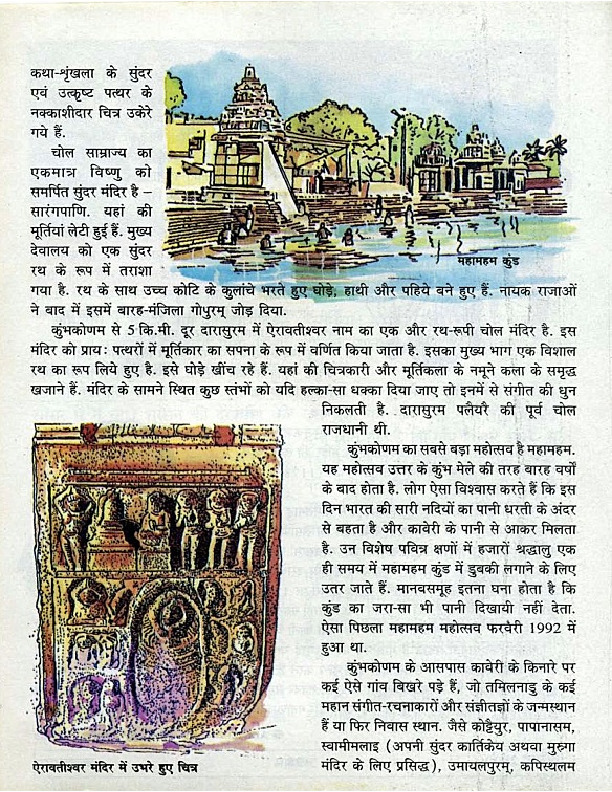 कथा-शृंखला के सुंदर
एवं उत्कृष्ट पत्थर के
नक्काशीदार चित्र उकेरे
गये हैं.
चोल साम्राज्य का
एकमात्र विष्णु को
समर्पित सुंदर मंदिर है –
सारंगपाणि. यहां की
मूर्तियां लेटी हुई हैं. मुख्य
देवालय को एक सुंदर
रथ के रूप में तराशा
महामहम कुंड
गया है. रथ के साथ उच्च कोटि के कुलांचे भरते हुए घोड़े, हाथी और पहिये बने हुए हैं. नायक राजाओं
ने बाद में इसमें बारह-मंजिला गोपुरम् जोड़ दिया.
कुंभकोणम से 5 कि.मी. दूर दारासुरम में ऐरावतीश्वर नाम का एक और रथ-रूपी चोल मंदिर है. इस
मंदिर को प्रायः पत्थरों में मूर्तिकार का सपना के रूप में वर्णित किया जाता है. इसका मुख्य भाग एक विशाल
रथ का रूप लिये हुए है. इसे घोड़े खींच रहे हैं. यहां की चित्रकारी और मूर्तिकला के नमूने कला के समृद्ध
खजाने हैं. मंदिर के सामने स्थित कुछ स्तंभों को यदि हल्का-सा धक्का दिया जाए तो इनमें से संगीत की धुन
निकलती है. दारासुरम पलैयरै की पूर्व चोल
राजधानी थी.
कुंभकोणम का सबसे बड़ा महोत्सव है महामहम.
यह महोत्सव उत्तर के कुंभ मेले की तरह बारह वर्षों
के बाद होता है. लोग ऐसा विश्वास करते हैं कि इस
दिन भारत की सारी नदियों का पानी धरती के अंदर
से बहता है और कावेरी के पानी से आकर मिलता
है. उन विशेष पवित्र क्षणों में हजारों श्रद्धालु एक
ही समय में महामहम कुंड में डुबकी लगाने के लिए
उतर जाते हैं. मानवसमूह इतना घना होता है कि
कुंड का जरा-सा भी पानी दिखायी नहीं देता.
ऐसा पिछला महामहम महोत्सव फरवरी 1992 में
हुआ था.
कुंभकोणम के आसपास कावेरी के किनारे पर
कई ऐसे गांव बिखरे पड़े हैं, जो तमिलनाडु के कई
महान संगीत-रचनाकारों और संज्ञीतज्ञों के जन्मस्थान
हैं या फिर निवास स्थान. जैसे कोट्टैयुर, पापानासम,
स्वामीमलाइ (अपनी सुंदर कार्तिकेय अथवा मुरुगा
मंदिर के लिए प्रसिद्ध), उमायलपुरम्, कपिस्थलम
ऐरावतीश्वर मंदिर में उभरे हुए चित्र